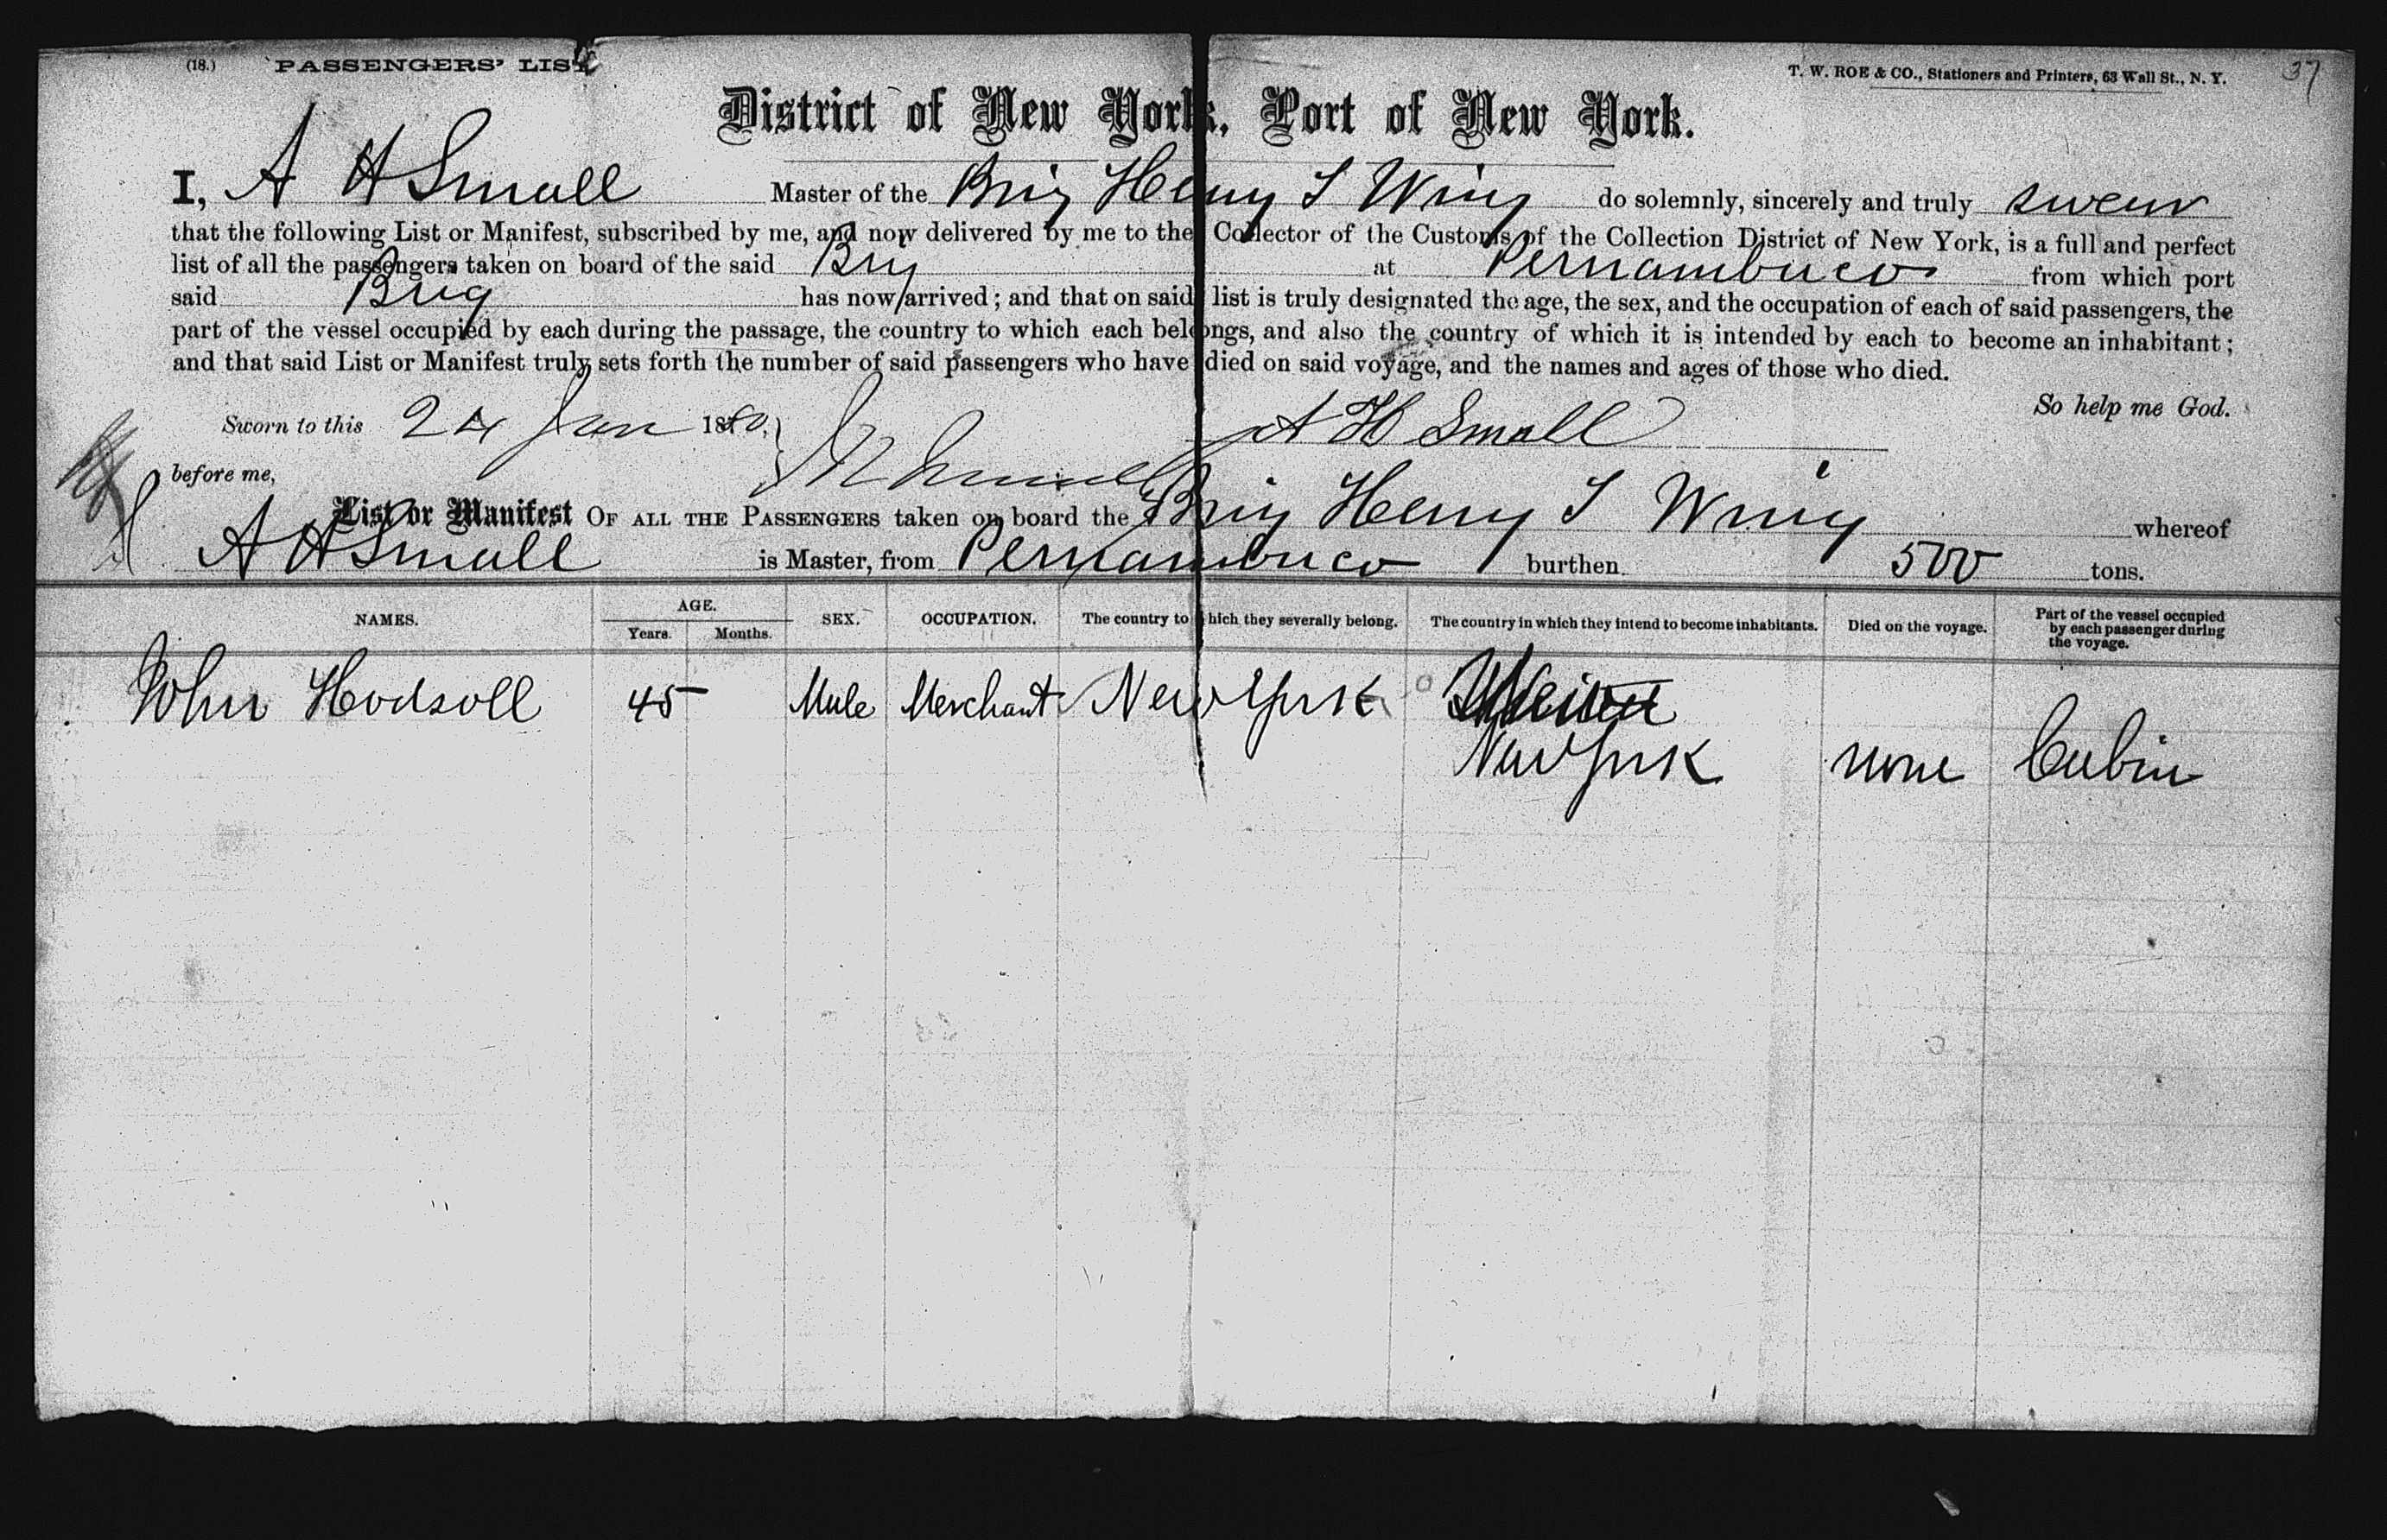 (18.) PASSENGERS' LIST
T. W. ROE & CO., Stationers and Printers, 63 Wall St., N. Y. 37
District of New York, Port of New York.
I, A H Small Master of the Brig Henry S Wing do solemnly, sincerely and truly swear
that the following List or Manifest, subscribed by me, and now delivered by me to the Collector of the Customs of the Collection District of New York, is a full and perfect
list of all the passengers taken on board of the said Brig at Pernambuco from which port
said Brig has now arrived; and that on said list is truly designated the age, the sex, and the occupation of each of said passengers, the
part of the vessel occupied by each during the passage, the country to which each belongs, and also the country of which it is intended by each to become an inhabitant;
and that said List or Manifest truly sets forth the number of said passengers who have died on said voyage, and the names and ages of those who died.
So help me God.
Sworn to this 24 Jan 1880, A H Small
before me,
List or Manifest OF ALL THE PASSENGERS taken on board the Brig Henry S Wing whereof
A H Small is Master, from Pernambuco burthen 500 tons.
NAMES. AGE. Years. Months. SEX. OCCUPATION. The country to which they severally belong. The country in which they intend to become inhabitants. Died on the voyage. Part of the vessel occupied by each passenger during the voyage.
John Hodsoll 45 Male Merchant New York
New York none Cabin